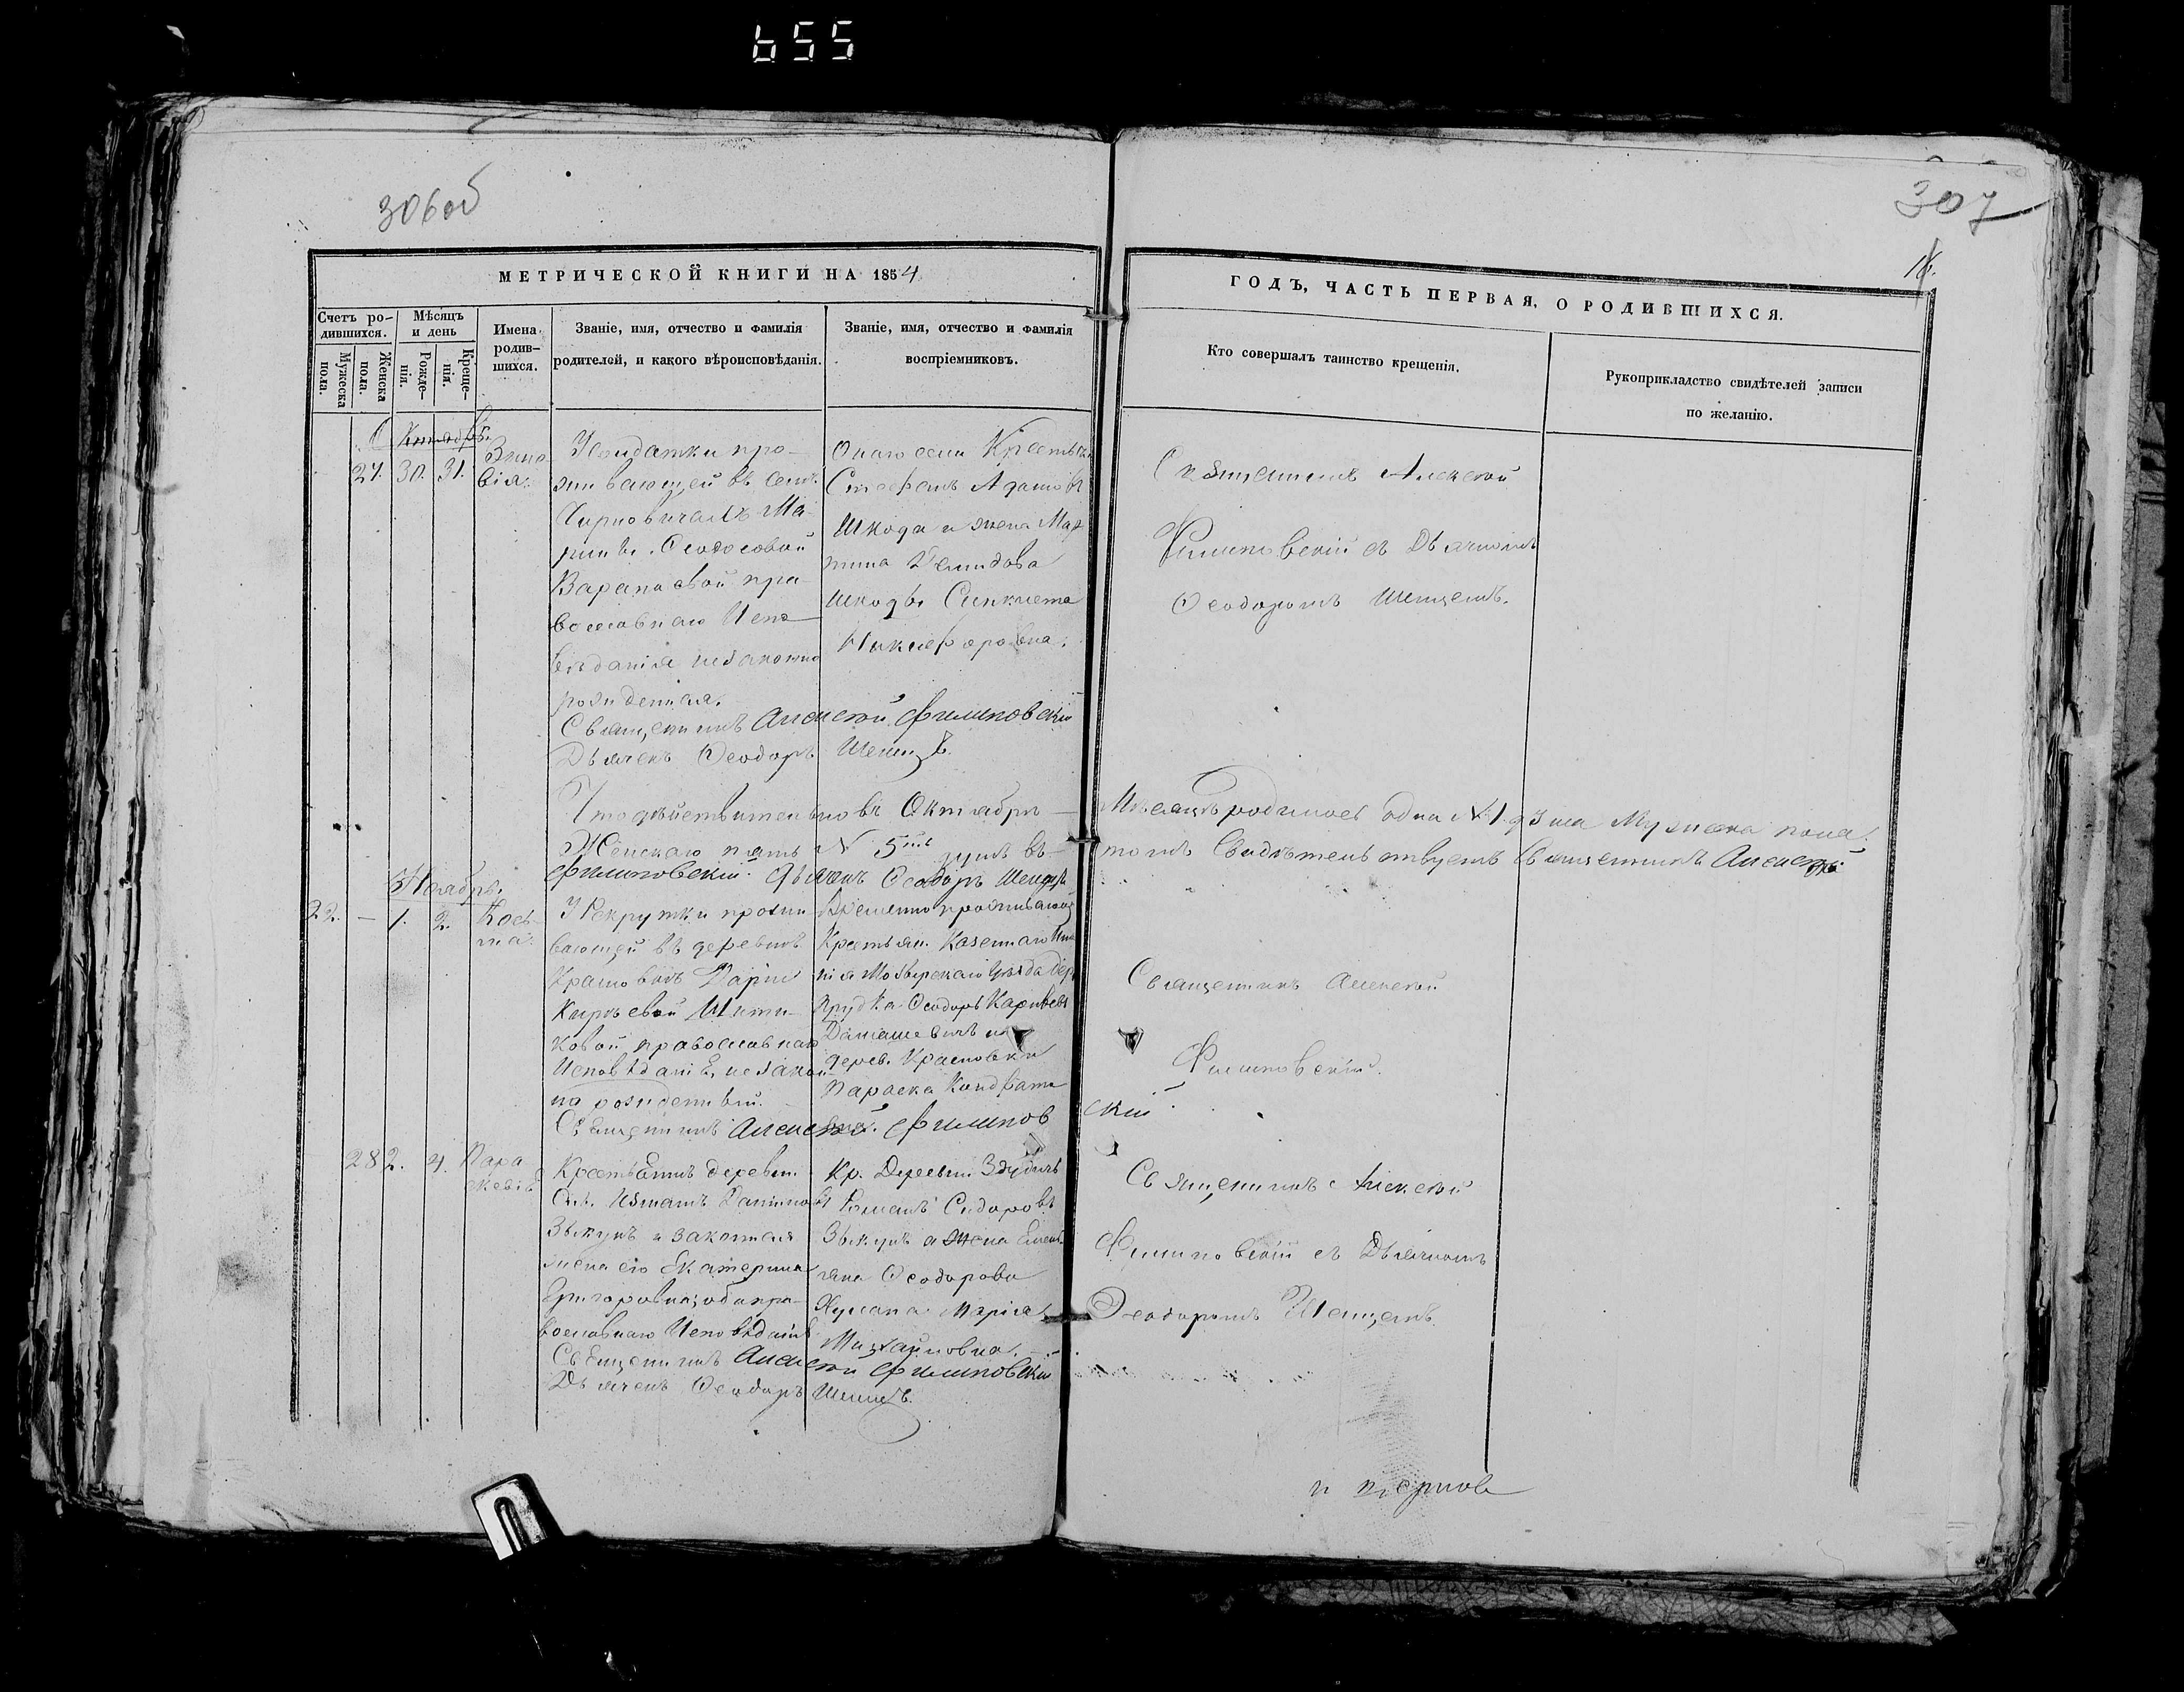 655
306об
307
МЕТРИЧЕСКОЙ КНИГИ НА 1854
ГОДЪ, ЧАСТЬ ПЕРВАЯ, О РОДИВШИХСЯ.
Счетъ родившихся.
Мужеска пола.
Женска пола.
Мѣсяцъ и день
Рожденія.
Крещенія.
Имена родившихся.
Званіе, имя, отчество и фамилія
родителей, и какого вѣроисповѣданія.
Званіе, имя, отчество и фамилія
воспріемниковъ.
Кто совершалъ таинство крещенія.
Рукоприкладство свидѣтелей записи
по желанію.
Октябрь.
27. 30. 31.
Зино
вія.
Солдатки про-
живающей въ селѣ
Ма-
рины Ѳеодосовой
Варапаевой пра-
вославнаго Испо-
вѣданія незаконно
рожденная.
Священникъ Алексѣй Филиповскій
Дьячекъ Ѳеодоръ Шенецъ.
Онаго села Крестьян.
Стефанъ Адамовъ
Шкода и жена Мар
тина Демидова
Шкоды Синклета
Никифоровна.
Священникъ Алексѣй
Филиповскій съ Дьячкомъ
Ѳеодоромъ Шенцемъ.
Что дѣйствительно въ Октябрѣ
Мѣсяцѣ родилось одна №1 Мужеска пола,
Женскаго пять № 5ть душъ въ
томъ Свидѣтельствуетъ Священникъ Алексѣй
Филиповскій. Дьячекъ Ѳеодоръ Шенецъ
Ноябрь.
22. — 1. 2.
Кось
ма.
У Рекрутки прожи
вающей въ деревнѣ
Дарьи
Кирѣевой
ковой православнаго
Исповѣданіе незакон
на рожденный.
Священникъ Алексѣй Филипов
скій
Временно проживающ
Крестьян. Казеннаго Имѣ
нія Мозырскаго Уѣзда дер
Прудка Ѳеодоръ Карпіевъ
Даташевичъ и
дерев. Красновки
Параска Кондрать
Священникъ Алексѣй
Филиповскій.
28 2. 4.
Пара
скевія
Крестьянинъ деревни
Зыкунъ и законная
жена его Екатерина
Григоровна, оба пра-
вославнаго Исповѣданія
Священникъ Алексѣй Филиповскій
Дьячекъ Ѳеодоръ Шенецъ.
Кр. Деревни Здудичъ
Романъ Сидоровъ
Зыкунъ и жена Емель
яна Ѳеодорова
Марія
Михайловна.
Священникъ Алексѣй
Филиповскій съ Дьячкомъ
Ѳеодоромъ Шенцемъ.